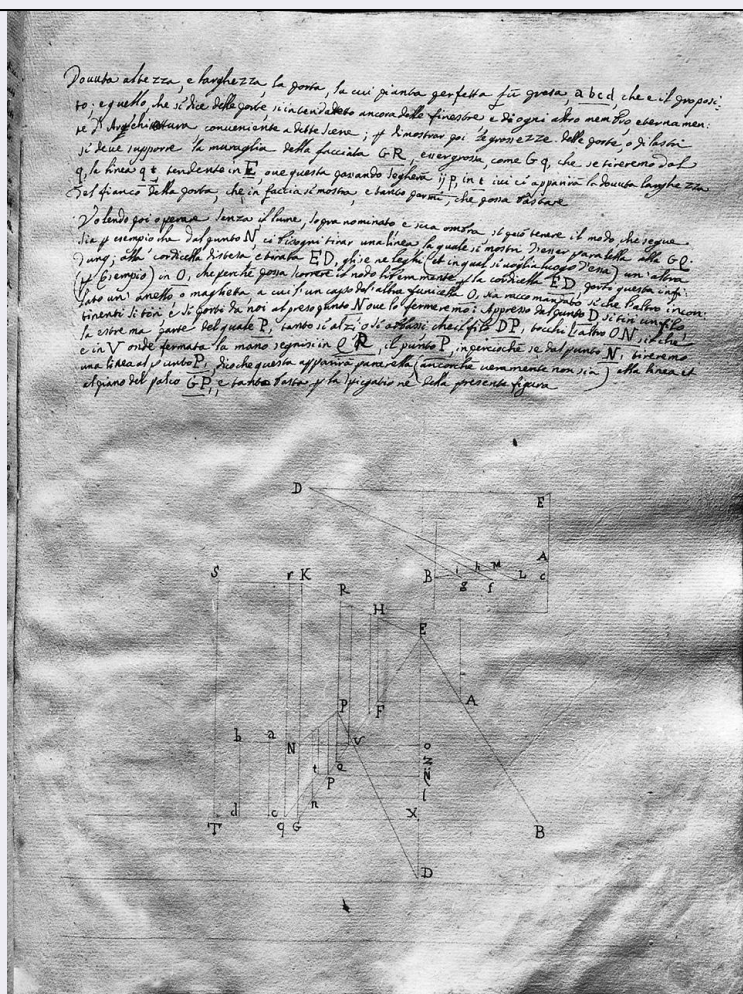 Douuta altezza, e larghezza, la porta, la cui pianta perfetta fù presa, abcd, che e il proposi:
to; e quello, che si dice delle porte, si intenda detto ancora delle finestre e di ogni altro membro eternamen:
te d'Architettura conueniente a dette Scene; p dimostrar poi le grossezze delle porte, o di lastri
si deue supporre la muraglia della facciata GR, esser grossa, come Gq, che se tireremo dal
q, la linea qt, tendente in E, oue questa passando segherà ijp, in t iui ci apparirà la douuta larghezza
del fianco della porta, che in faccia si mostra, e tanto parmi, che possa bastare
Volendo poi operare senza il lume, sopra nominato e sua ombra si può tenere il modo che segue
sia p esempio che dal punto N ci bisogni tirar una linea la quale si mostri d'esser paralella alla GQ
dung; alla cordicella distesa e tirata ED, ghi se ne leghi (et in qual si uoglia luogo d'essa) un'altra
(p Esempio) in O, che perche possa scorrere il nodo liberamente p la cordicella ED porto questa infi:
lato un anello o maglietta, a cui sia un capo dell'altra funicella O, sia raccomandato si che l'altro incon:
tinenti si tiri e si porti da noi al preso punto N oue lo fermeremo: Appresso dal punto D si tiri un filo
la estrema parte del quale P, tanto si alzi o si abbassi che il filo DP, tocchi l'altro ON, si che
e in V onde fermata la mano segnisi in QR, il punto P, imperciochè se dal punto N, tireremo
una linea al punto P, dico che questa apparirà paralella (ancorche ueramente non sia) alla linea et
al piano del palco GP, e tanto basta, p la spiegatione della presente figura
D E
A
B i h M L c
g f
S r K
R
H
E
P F A
b a N V o
t Q Z
P N
n l
d c X
T q G B
D